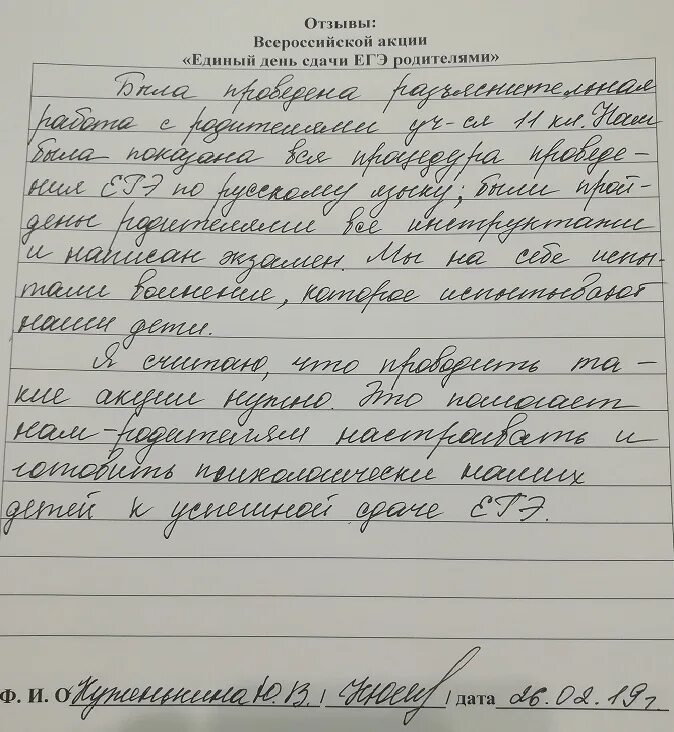 Отзывы:
Всероссийской акции
«Единый день сдачи ЕГЭ родителями»
Была проведена разъяснительная
работа с родителями уч-ся 11 кл. Нам
была показана вся процедура проведе-
ния ЕГЭ по русскому языку; были прой-
дены родителями все инструктажи
и написан экзамен. Мы на себе испы-
тали волнение, которое испытывают
наши дети.
Я считаю, что проводить та-
кие акции нужно. Это помогает
нам-родителям настраивать и
готовить психологически наших
детей к успешной сдаче ЕГЭ.
Ф. И. О Куженькина Ю. В. / / дата 26.02.19г.